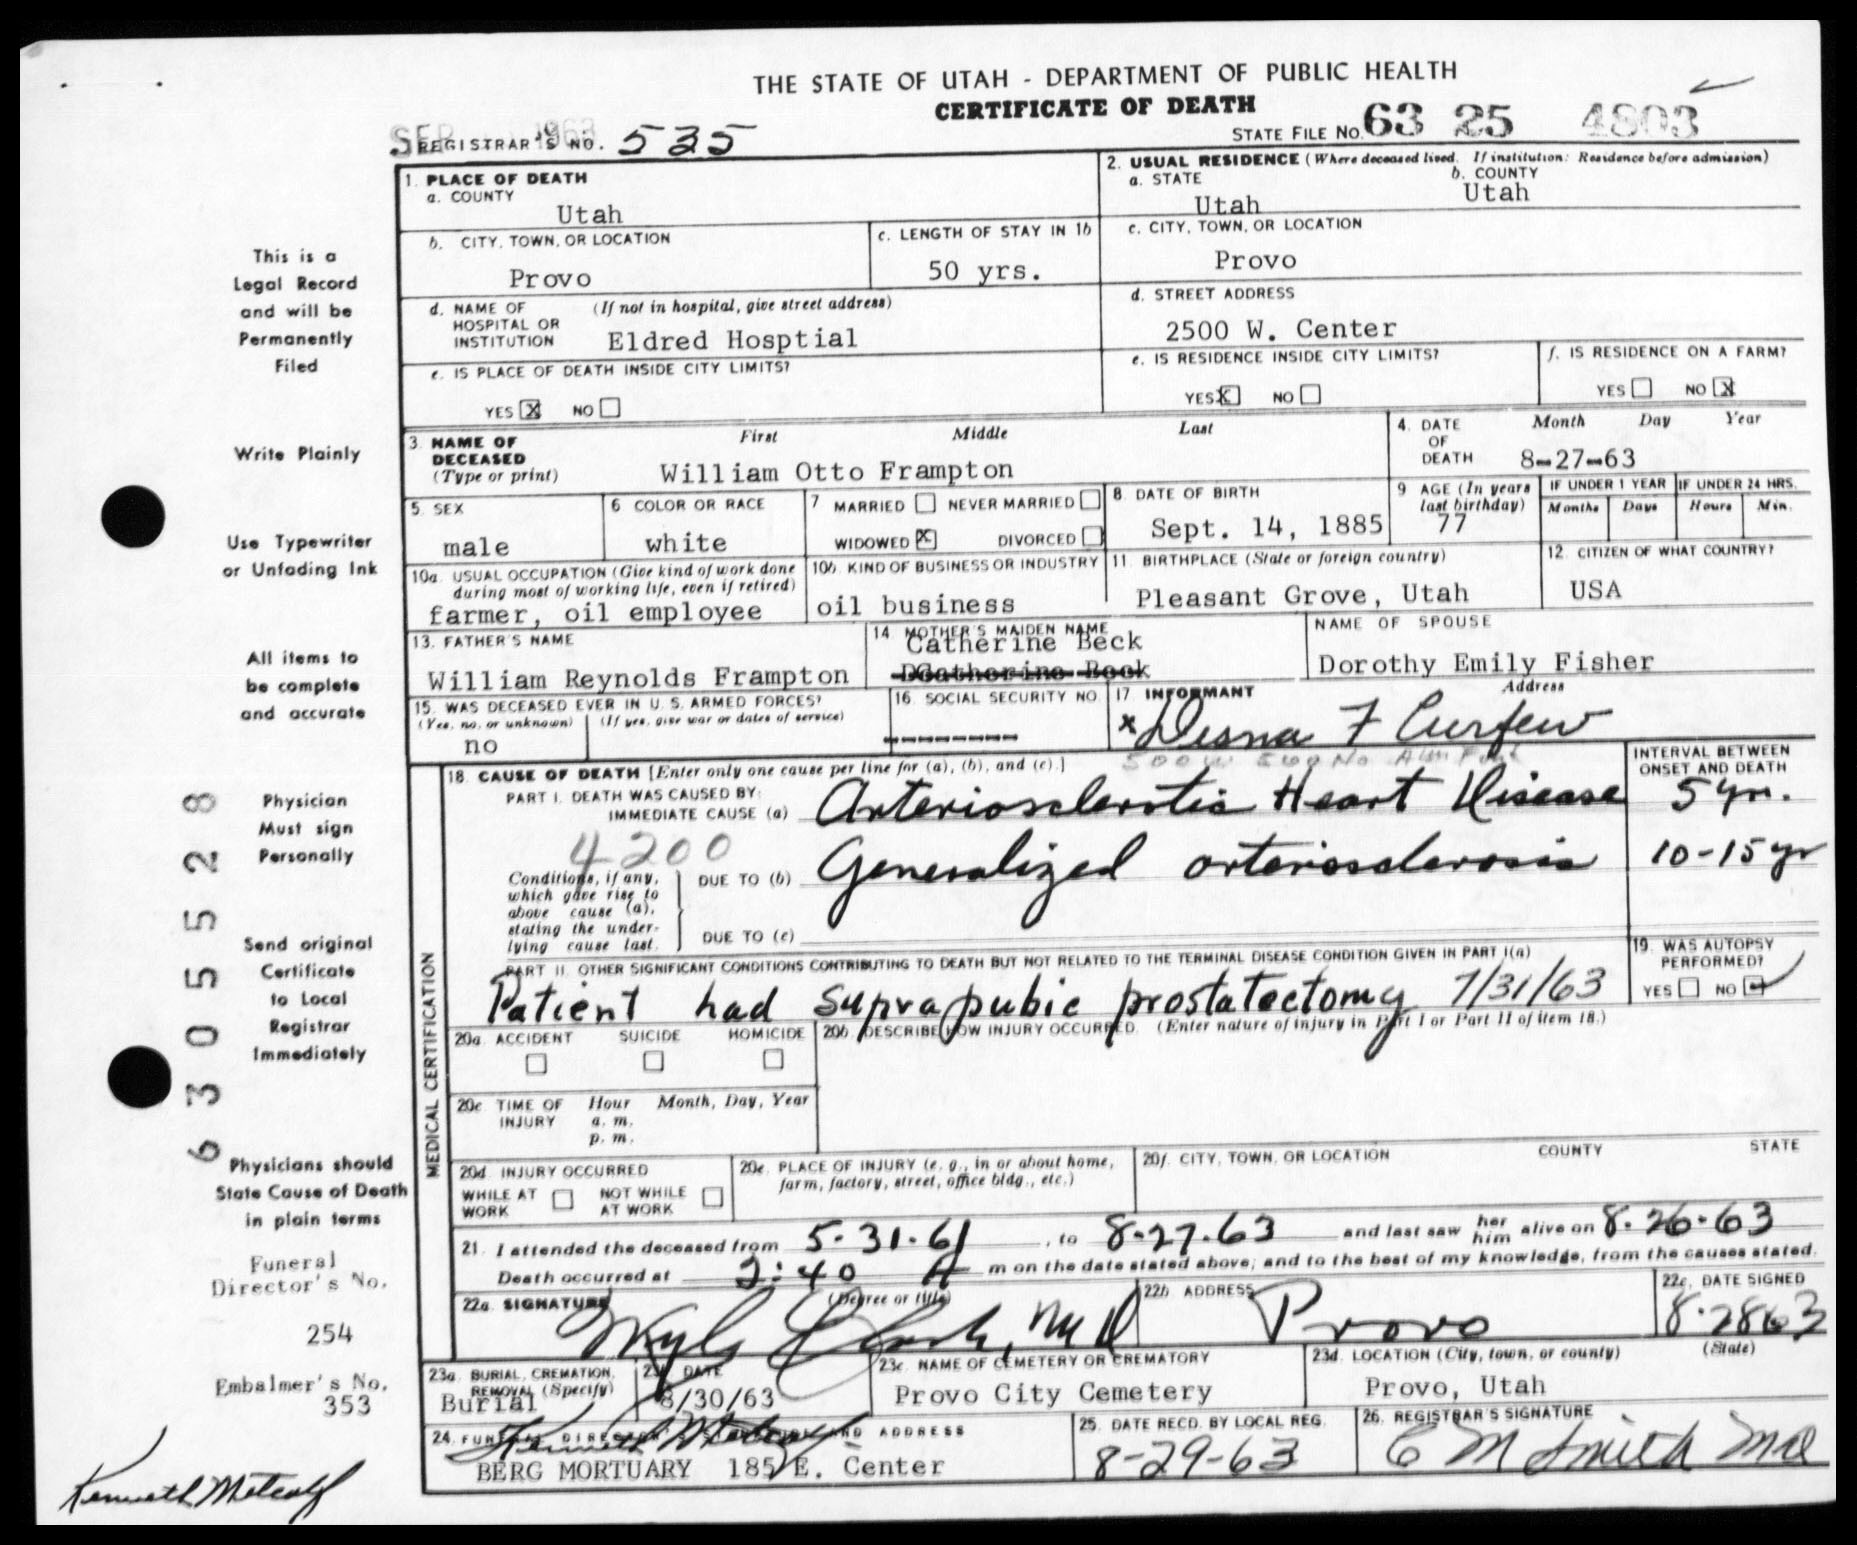 THE STATE OF UTAH - DEPARTMENT OF PUBLIC HEALTH
CERTIFICATE OF DEATH
SEP 1963
REGISTRAR'S NO. 535
STATE FILE NO. 63 25 4803
1. PLACE OF DEATH
a. COUNTY
Utah
2. USUAL RESIDENCE (Where deceased lived. If institution: Residence before admission)
a. STATE
Utah
b. COUNTY
Utah
b. CITY, TOWN, OR LOCATION
Provo
c. LENGTH OF STAY IN 1b
50 yrs.
c. CITY, TOWN, OR LOCATION
Provo
d. NAME OF HOSPITAL OR INSTITUTION
(If not in hospital, give street address)
Eldred Hosptial
d. STREET ADDRESS
2500 W. Center
e. IS PLACE OF DEATH INSIDE CITY LIMITS?
YES X NO
e. IS RESIDENCE INSIDE CITY LIMITS?
YES X NO
f. IS RESIDENCE ON A FARM?
YES NO X
3. NAME OF DECEASED (Type or print)
First Middle Last
William Otto Frampton
4. DATE OF DEATH
Month Day Year
8-27-63
5. SEX
male
6 COLOR OR RACE
white
7 MARRIED NEVER MARRIED
WIDOWED X DIVORCED
8. DATE OF BIRTH
Sept. 14, 1885
9 AGE (In years last birthday)
77
IF UNDER 1 YEAR
Months Days
IF UNDER 24 HRS.
Hours Min.
10a. USUAL OCCUPATION (Give kind of work done during most of working life, even if retired)
farmer, oil employee
10b. KIND OF BUSINESS OR INDUSTRY
oil business
11. BIRTHPLACE (State or foreign country)
Pleasant Grove, Utah
12. CITIZEN OF WHAT COUNTRY?
USA
13. FATHER'S NAME
William Reynolds Frampton
14. MOTHER'S MAIDEN NAME
Catherine Beck
DCatherine Beck
NAME OF SPOUSE
Dorothy Emily Fisher
15. WAS DECEASED EVER IN U. S. ARMED FORCES?
(Yes, no, or unknown) (If yes, give war or dates of service)
no
16. SOCIAL SECURITY NO.
---------
17 INFORMANT
Address
x Desna F Curfew
18. CAUSE OF DEATH [Enter only one cause per line for (a), (b), and (c).]
INTERVAL BETWEEN ONSET AND DEATH
PART I. DEATH WAS CAUSED BY:
IMMEDIATE CAUSE (a) Arteriosclerotic Heart Disease 5 yrs.
4200
Conditions, if any, which gave rise to above cause (a), stating the underlying cause last.
DUE TO (b) Generalized arteriosclerosis 10-15 yr
DUE TO (c)
PART II. OTHER SIGNIFICANT CONDITIONS CONTRIBUTING TO DEATH BUT NOT RELATED TO THE TERMINAL DISEASE CONDITION GIVEN IN PART I(a)
Patient had suprapubic prostatectomy 7/31/63
19. WAS AUTOPSY PERFORMED?
YES NO
20a. ACCIDENT SUICIDE HOMICIDE
20b. DESCRIBE HOW INJURY OCCURRED. (Enter nature of injury in Part I or Part II of item 18.)
20c TIME OF INJURY
Hour Month, Day, Year
a. m.
p. m.
20d. INJURY OCCURRED
WHILE AT WORK NOT WHILE AT WORK
20e. PLACE OF INJURY (e. g., in or about home, farm, factory, street, office bldg., etc.)
20f. CITY, TOWN, OR LOCATION COUNTY STATE
21. I attended the deceased from 5-31-61, to 8-27-63 and last saw her him alive on 8-26-63
Death occurred at 2:40 A m on the date stated above; and to the best of my knowledge, from the causes stated.
22a. SIGNATURE (Degree or title)
MD
22b ADDRESS
Provo
22c. DATE SIGNED
8-28 63
23a. BURIAL, CREMATION, REMOVAL (Specify)
Burial
23b. DATE
8/30/63
23c. NAME OF CEMETERY OR CREMATORY
Provo City Cemetery
23d. LOCATION (City, town, or county) (State)
Provo, Utah
24. FUNERAL DIRECTOR'S SIGNATURE AND ADDRESS
Kenneth Metcalf
BERG MORTUARY 185 E. Center
25. DATE RECD. BY LOCAL REG.
8-29-63
26. REGISTRAR'S SIGNATURE
C M Smith MD
MEDICAL CERTIFICATION
This is a
Legal Record
and will be
Permanently
Filed
Write Plainly
Use Typewriter
or Unfading Ink
All items to
be complete
and accurate
Physician
Must sign
Personally
Send original
Certificate
to Local
Registrar
Immediately
Physicians should
State Cause of Death
in plain terms
Funeral
Director's No.
254
Embalmer's No.
353
Kenneth Metcalf
63055528